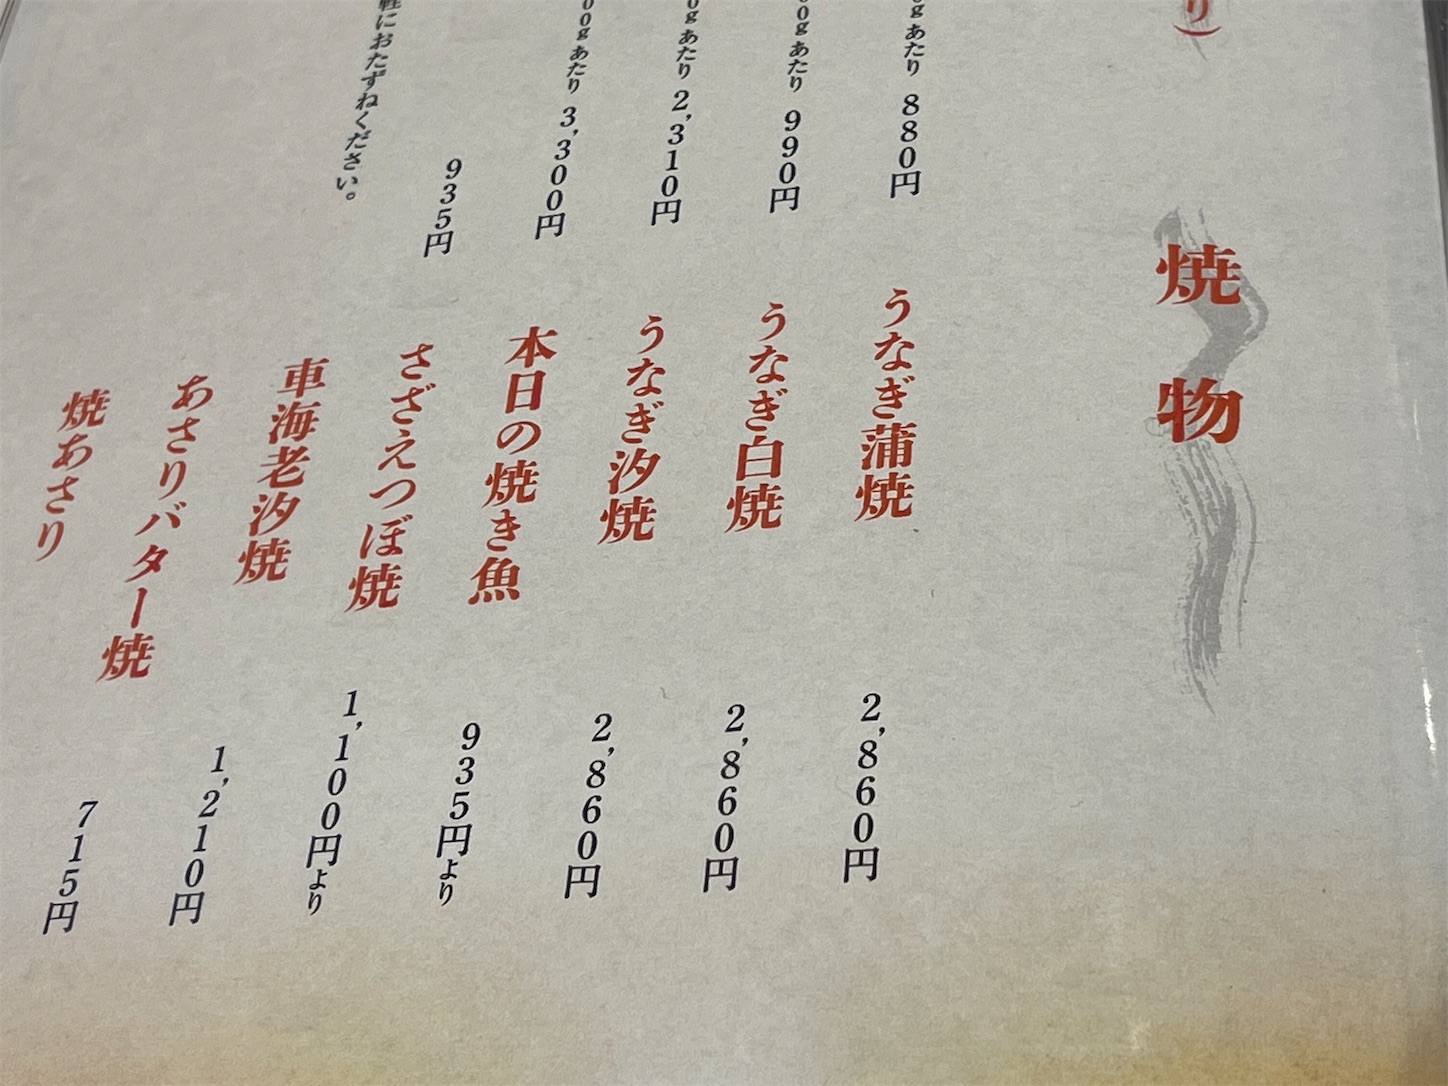 り）
g あたり 880円
0g あたり 990円
0g あたり 2,310円
00g あたり 3,300円
935円
軽におたずねください。
焼物
うなぎ蒲焼 2,860円
うなぎ白焼 2,860円
うなぎ汐焼 2,860円
本日の焼き魚 935円より
さざえつぼ焼 1,100円より
車海老汐焼 1,210円
あさりバター焼 715円
焼あさり